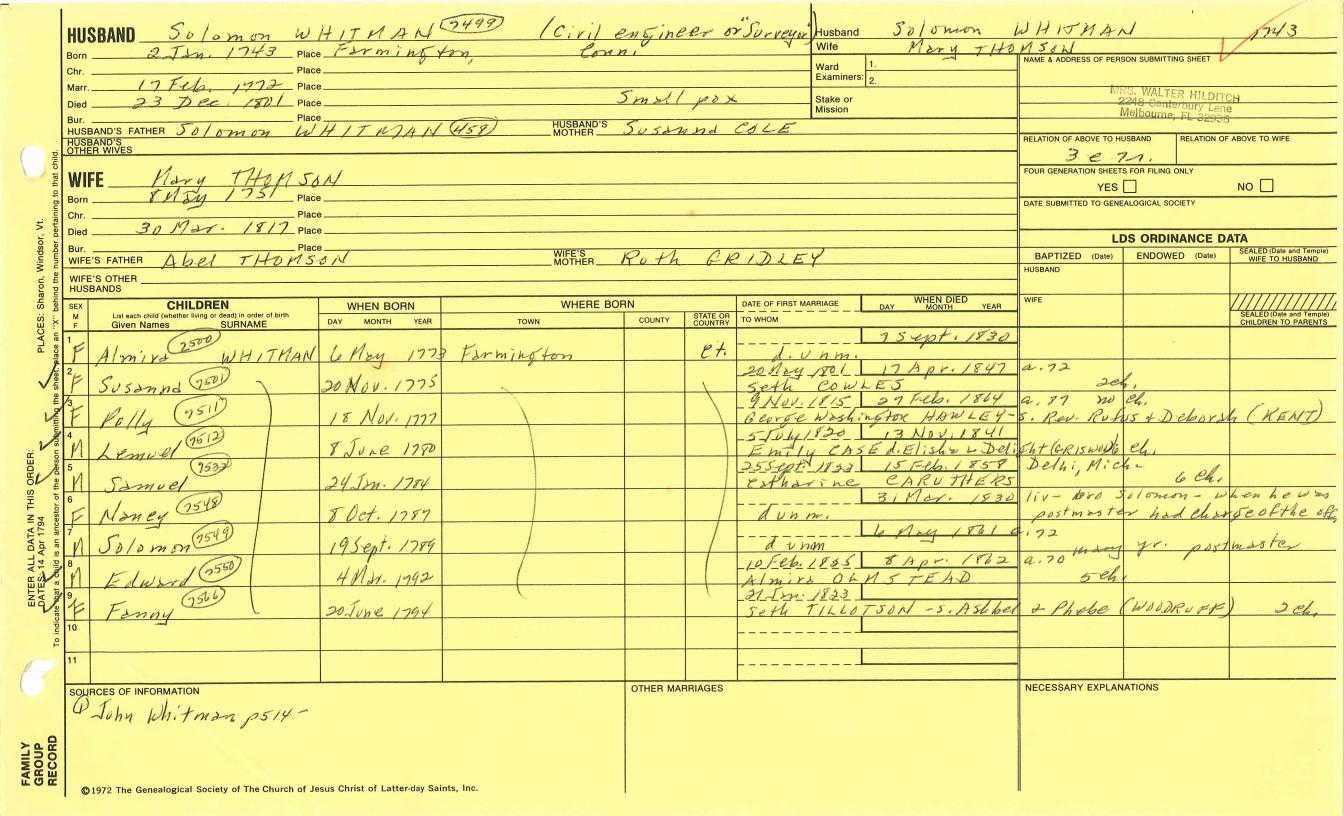 HUSBAND Solomon WHITMAN 7499 (Civil engineer or "Surveyor")
Born 2 Jan. 1743 Place Farmington, Conn.
Chr. Place
Marr. 17 Feb. 1772 Place
Died 23 Dec. 1801 Place Small pox
Bur. Place
HUSBAND'S FATHER Solomon WHITMAN 7458 HUSBAND'S MOTHER Susanna COLE
HUSBAND'S OTHER WIVES
WIFE Mary THOMSON
Born 8 May 1751 Place
Chr. Place
Died 30 Mar. 1817 Place
Bur. Place
WIFE'S FATHER Abel THOMSON WIFE'S MOTHER Ruth GRIDLEY
WIFE'S OTHER HUSBANDS
Husband Solomon WHITMAN 1743
Wife Mary THOMSON
Ward Examiners: 1. 2.
Stake or Mission
NAME & ADDRESS OF PERSON SUBMITTING SHEET
MRS. WALTER HILDITCH
2248 Canterbury Lane
Melbourne, FL 32935
RELATION OF ABOVE TO HUSBAND RELATION OF ABOVE TO WIFE
FOUR GENERATION SHEETS FOR FILING ONLY
YES NO
DATE SUBMITTED TO GENEALOGICAL SOCIETY
LDS ORDINANCE DATA
BAPTIZED (Date) ENDOWED (Date) SEALED (Date and Temple) WIFE TO HUSBAND
HUSBAND
WIFE
SEALED (Date and Temple) CHILDREN TO PARENTS
SEX M F CHILDREN WHEN BORN WHERE BORN DATE OF FIRST MARRIAGE WHEN DIED
List each child (whether living or dead) in order of birth
Given Names SURNAME DAY MONTH YEAR TOWN COUNTY STATE OR COUNTRY TO WHOM DAY MONTH YEAR
1 F Almira 7500 WHITMAN 6 May 1773 Farmington Ct. 7 Sept. 1830
d. unm.
2 F Susanna 7501 20 Nov. 1775 20 May 1801 17 Apr. 1847 a. 72
Seth COWLES 2 ch.
3 F Polly 7511 18 Nov. 1777 9 Nov. 1815 27 Feb. 1864 a. 87 no ch.
George Washington HAWLEY - s. Rev. Rufus & Deborah (KENT)
4 M Lemuel 7512 8 June 1780 5 July 1820 13 Nov. 1841
Emily CASE d. Elisha & Delight (GRISWOLD) ch.
5 M Samuel 7532 24 Jan. 1784 25 Sept. 1822 15 Feb. 1858 Delhi, Mich.
Catharine CARUTHERS 6 ch.
6 F Nancy 7548 8 Oct. 1787 31 Mar. 1830 liv - bro Solomon - when he was
d unm. postmaster had charge of the off
7 M Solomon 7549 19 Sept. 1789 6 May 1861 a. 72
d unm many yr. postmaster
8 M Edward 7550 4 Mar. 1792 10 Feb. 1825 8 Apr. 1862 a. 70
Almira OLMSTEAD 5 ch.
9 F Fanny 7566 20 June 1794 21 Jan. 1823
Seth TILLOTSON - s. Ashbel & Phebe (WOODRUFF) 2 ch.
10
11
SOURCES OF INFORMATION OTHER MARRIAGES NECESSARY EXPLANATIONS
① John Whitman p514 -
©1972 The Genealogical Society of The Church of Jesus Christ of Latter-day Saints, Inc.
FAMILY GROUP RECORD
ENTER ALL DATA IN THIS ORDER:
DATES: 14 Apr 1794 PLACES: Sharon, Windsor, Vt.
To indicate that a child is an ancestor of the person submitting the sheet, place an "X" behind the number pertaining to that child.